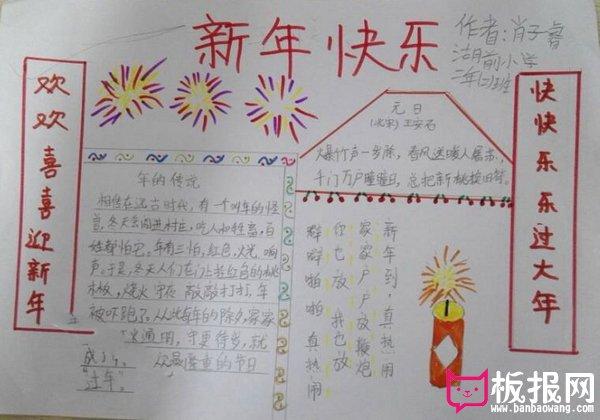 新年快乐
作者:肖子睿
湖前小学
二年(2)班
欢欢喜喜迎新年
快快乐乐过大年
年的传说
相传在远古时代,有一个叫年的怪
兽,冬天会闯进村庄,吃人和牲畜,百
姓都怕它。年有三怕,红色,火光,响
声。于是,冬天人们在门上挂红色的桃
木板,烧火 敲敲打打,年
被吓跑了。从此每年的除夕,家家
火通明,守更待岁,就
成了
众最隆重的节日
“过年”。
元日
(北宋)王安石
爆竹声一岁除,春风送暖入屠苏,
千门万户曈曈日,总把新桃换旧符。
新年到,真热闹
家家户户放鞭炮
你也放我也放
噼噼啪啪真热闹
板报网
www.banbaowang.com